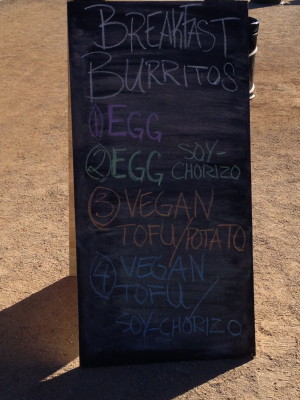 BREAKFAST
BURRITOS
① EGG
② EGG SOY-
CHORIZO
③ VEGAN
TOFU/POTATO
④ VEGAN
TOFU/
SOY-CHORIZO